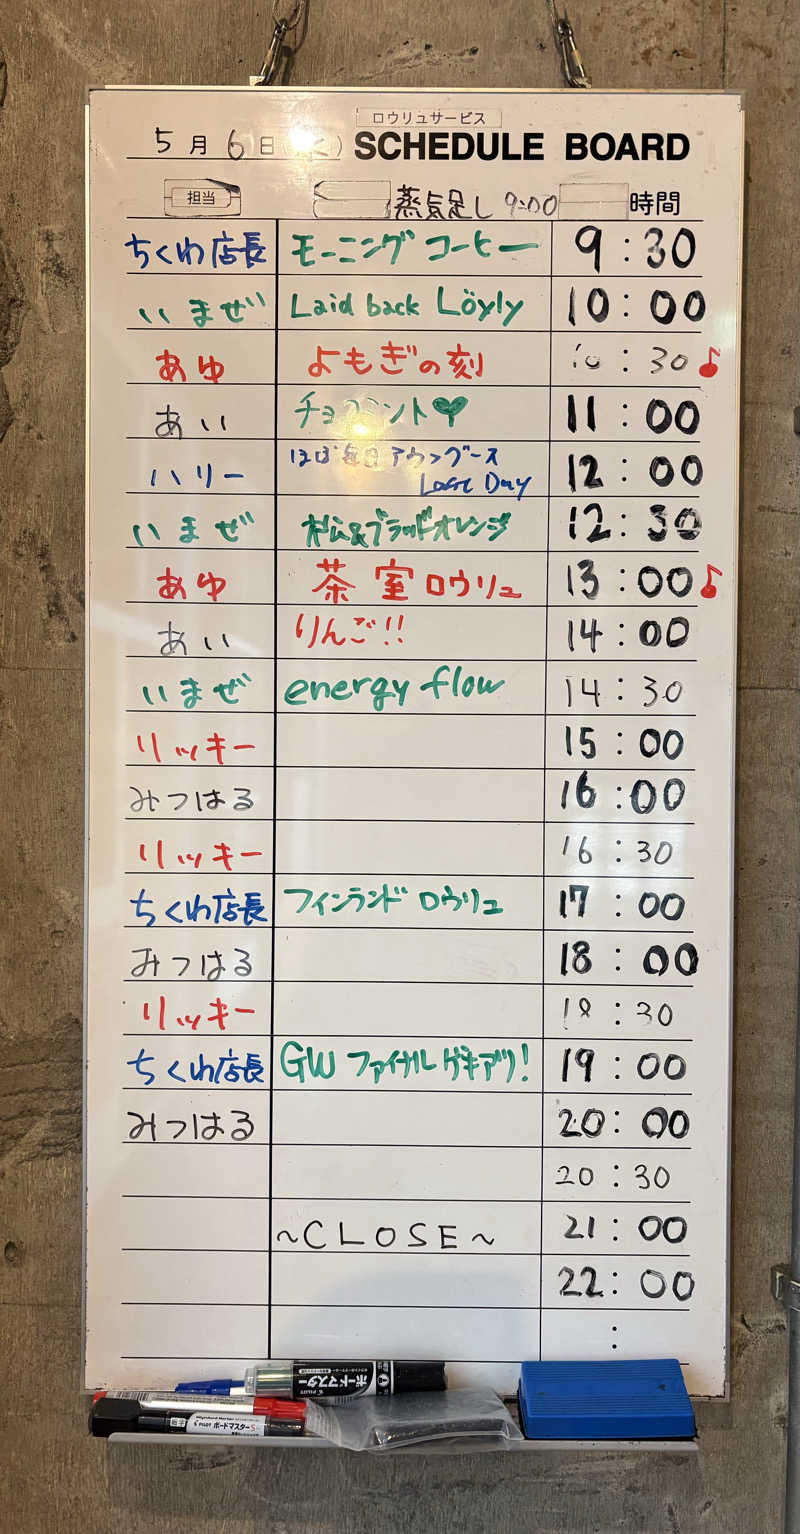 ロウリュサービス
5月6日( ) SCHEDULE BOARD
担当 蒸気足し 9:00 時間
ちくわ店長 モーニング コーヒー 9:30
いまぜい Laid back Löyly 10:00
あゆ よもぎの刻 10:30♪
あい チョコミント 11:00
ハリー ほぼ毎日アウフグース 12:00
Last Day
いまぜい 松&ブラッドオレンジ 12:30
あゆ 茶室ロウリュ 13:00♪
あい りんご!! 14:00
いまぜい energy flow 14:30
リッキー 15:00
みつはる 16:00
リッキー 16:30
ちくわ店長 フィンランド ロウリュ 17:00
みつはる 18:00
リッキー 18:30
ちくわ店長 GW ファイナル ゲキアツ! 19:00
みつはる 20:00
20:30
~CLOSE~ 21:00
22:00
:
ボードマスター
PILOT
PILOT ボードマスターS